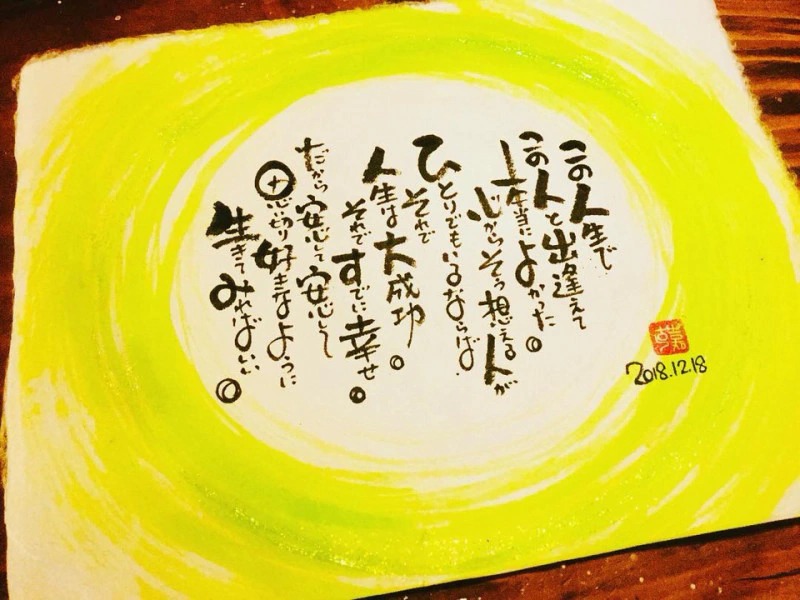 この人生で
この人と出逢えて
本当によかった。
心からそう想える人が
ひとりでもいるならば、
それで
人生は大成功。
それですでに幸せ。
だから安心して安心して
思い切り好きなように
生きてみればいい。
2018.12.18